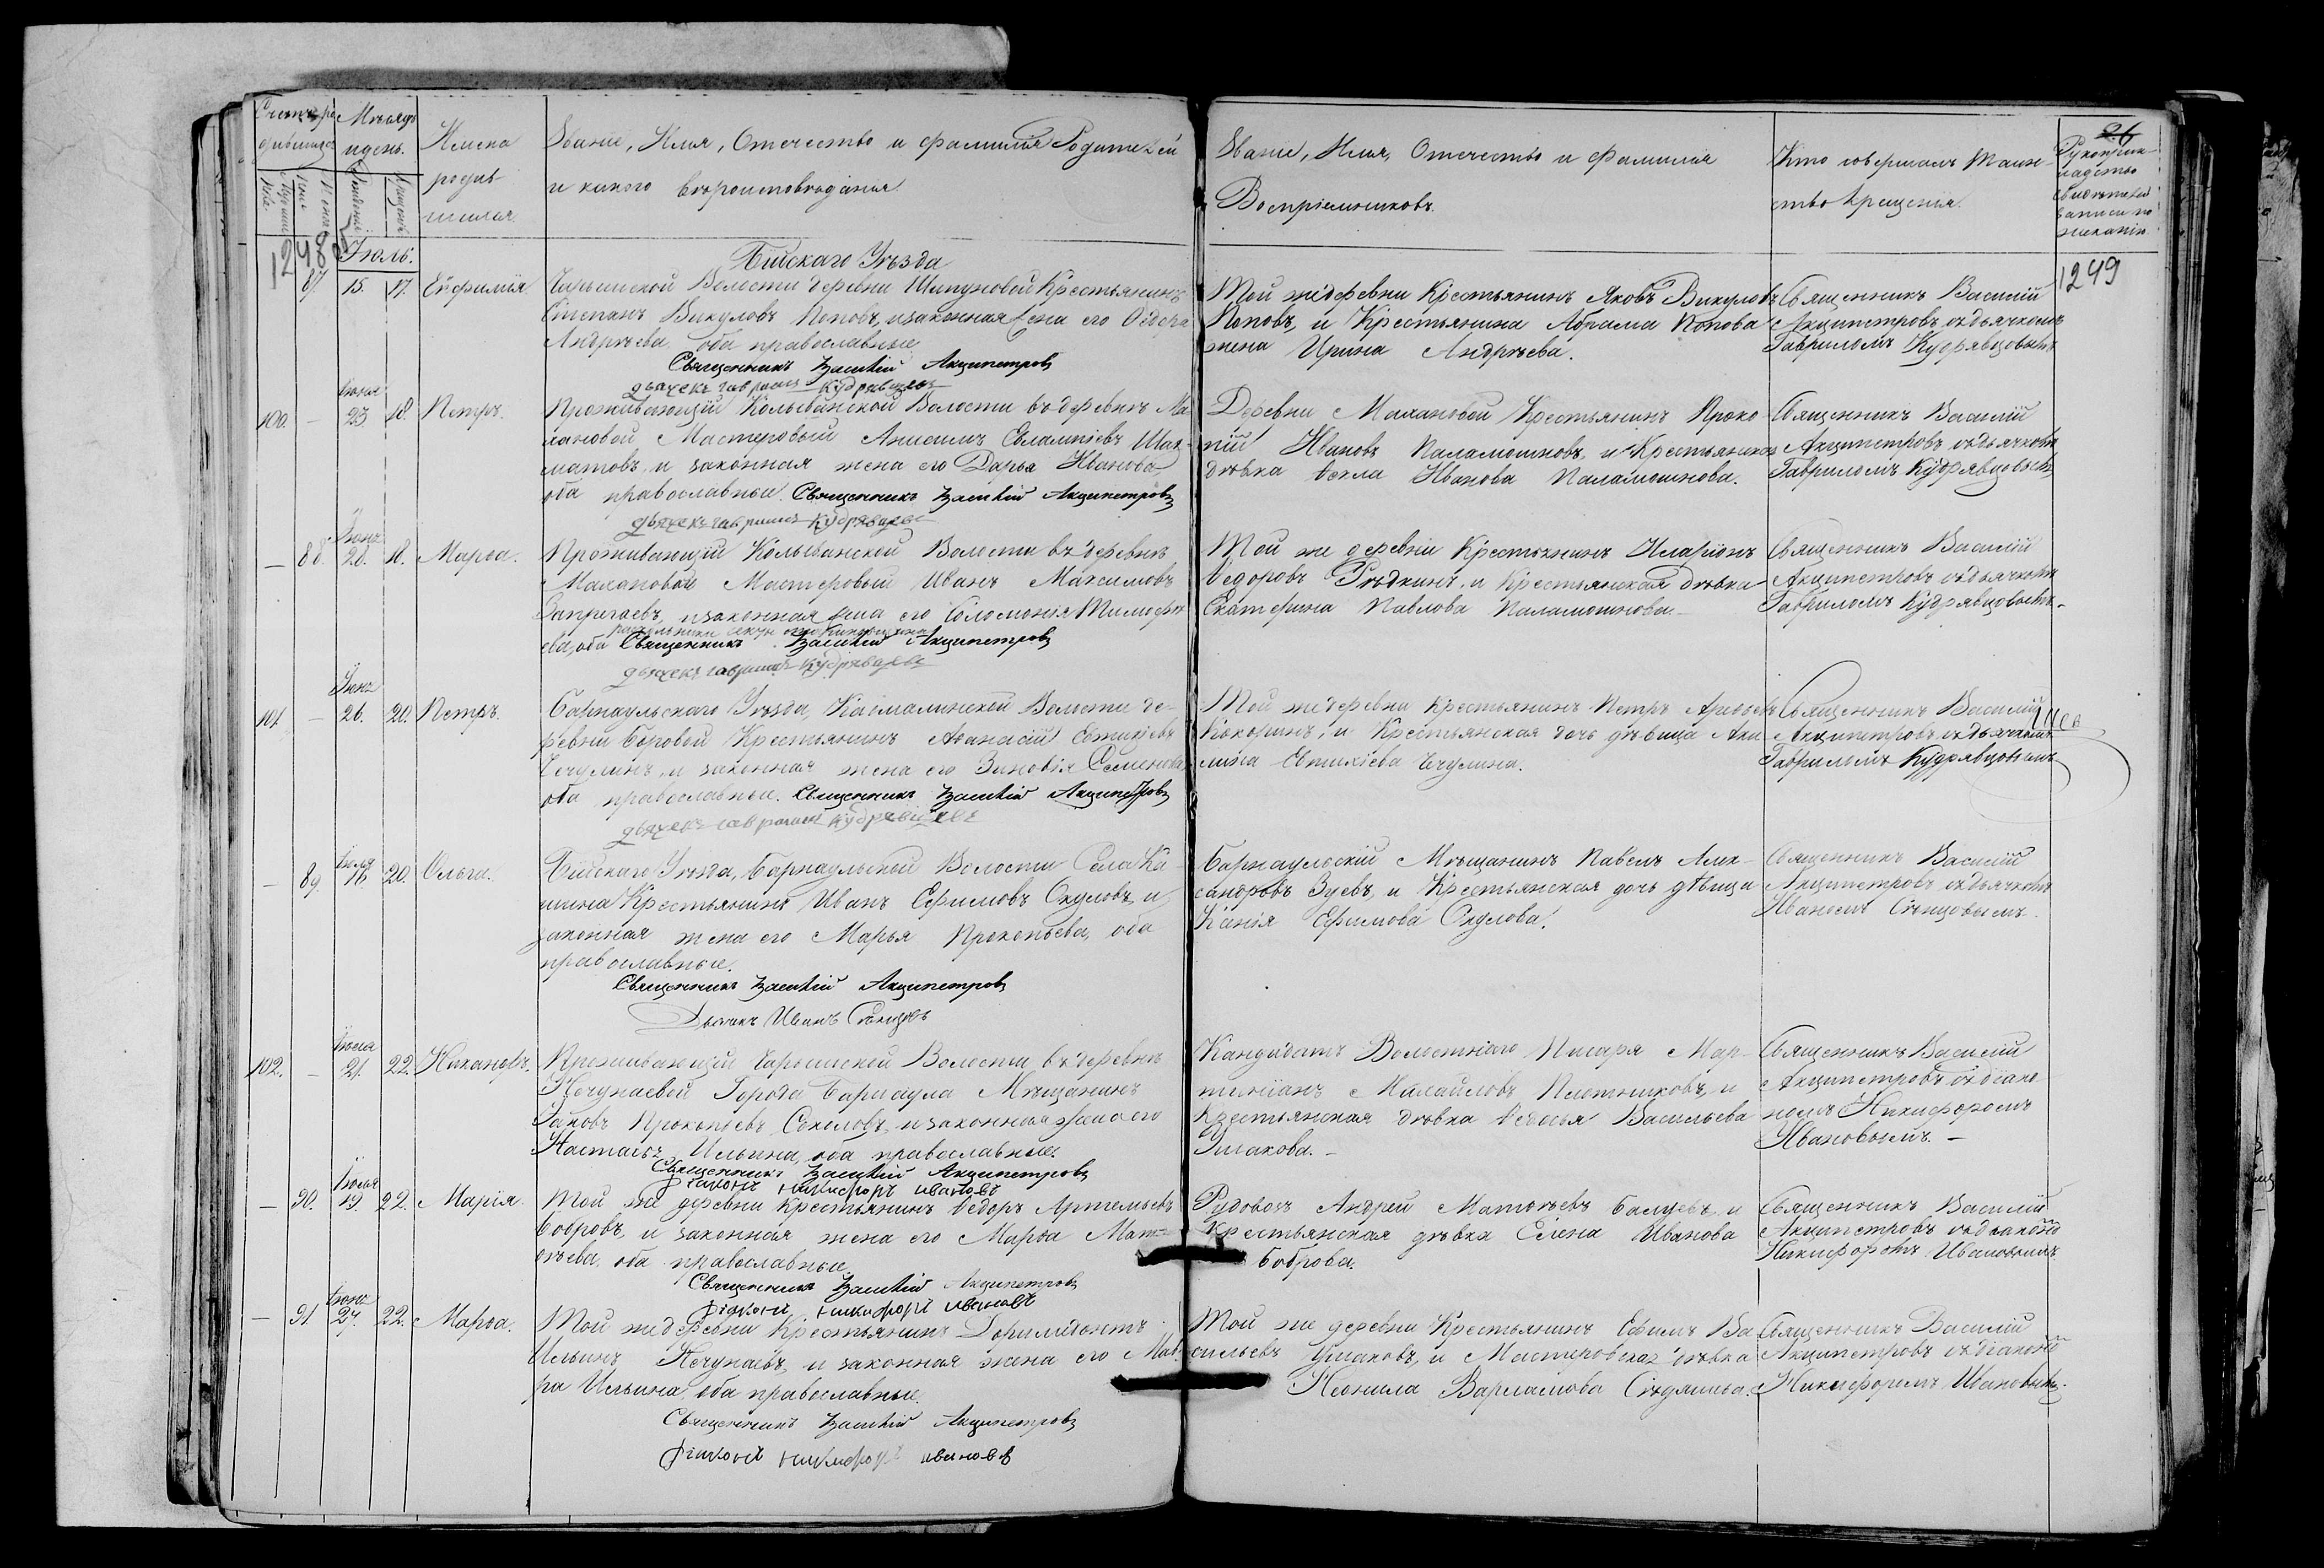 Счетъ ро
дившихся
Мѣсяцъ
и день.
Имена
родив
шихся.
Званіе, Имя, Отечество и фамилія Родителей
и какого вѣроисповѣданія.
Званіе, Имя, Отечество и Фамилія
Воспріемниковъ.
Кто совершалъ Таин-
ство Крещенія.
26
Рукоприк-
ладство
свидѣтелей
записи по
желанію.
1248 об
1249
Іюль.
Бійскаго Уѣзда
87 15. 17. Евфимія.
Чарышской Волости деревни Шипуновой Крестьянинъ
Степанъ Викуловъ Поповъ, и законная жена его Ѳедора
Андрѣева, оба православные
Священникъ Василій Акципетровъ
дьячекъ гаврилъ кудрявцевъ
Той же деревни Крестьянинъ Яковъ Викуловъ
Поповъ, и Крестьянина Абрама Попова
жена Ирина Андрѣева.
Священникъ Василій
Акципетровъ съ дьячкомъ
Гавриломъ Кудрявцовымъ
100. — 23 18. Петръ.
Проживающій Колыванской Волости въ деревнѣ Ма
лановой Мастеровый Анисимъ Евлампіевъ Шах-
матовъ, и законная жена его Дарья Иванова
оба православные. Священникъ Василій Акципетровъ
дьячекъ гаврилъ кудрявцевъ
Деревни Малановой Крестьянинъ Проко
пій Ивановъ Паламошновъ, и Крестьянская
дѣвка Ѳекла Иванова Паламошнова.
Священникъ Василій
Акципетровъ съ дьячкомъ
Гавриломъ Кудрявцовымъ
— 88. Іюня 28. 18. Марѳа.
Проживающій Колыванской Волости въ деревнѣ
Малановой Мастеровый Иванъ Максимовъ
Запрягаевъ, и законная жена его Соломонія Тимофѣ
ева, оба Священникъ Василій Акципетровъ
дьячекъ гаврилъ кудрявцевъ
Той же деревни Крестьянинъ Иларіонъ
Ѳедоровъ Рѣдкинъ, и Крестьянская дѣвка
Екатерина Павлова Паламошнова.
Священникъ Василій
Акципетровъ съ дьячкомъ
Гавриломъ Кудрявцовымъ.
101. — Іюня 26. 20. Петръ.
Барнаульскаго Уѣзда, Касмалинской Волости де-
ревни Боровой Крестьянинъ Аѳанасій Евтихіевъ
Чечулинъ, и законная жена его Зиновія Семенова
оба православные. Священникъ Василій Акципетровъ
дьячекъ гаврилъ кудрявцевъ
Той же деревни Крестьянинъ Петръ
Кокоринъ, и Крестьянская дочь дѣвица Аки
лина Евтихіева Чечулина.
Священникъ Василій
Акципетровъ, съ дьячкомъ
Гавриломъ Кудрявцовымъ
— 89. Іюля 16. 20. Ольга.
Бійскаго Уѣзда, Барнаульской Волости Села Ка
шина Крестьянинъ Иванъ Ефимовъ Окуловъ, и
законная жена его Марья Прокопьева, оба
православные.
Священникъ Василій Акципетровъ
Дьячекъ Иванъ Сѣнцовъ
Барнаульскій Мѣщанинъ Павелъ Алек-
сандровъ Зуевъ, и Крестьянская дочь дѣвица
Ксанѳія Ефимова Окулова.
Священникъ Василій
Акципетровъ съ дьячкомъ
Иваномъ Сѣнцовымъ.
102. — Іюля 21. 22. Никаноръ.
Проживающій Чарышской Волости въ деревнѣ
Нечунаевой Города Барнаула Мѣщанинъ
Яковъ Прокопьевъ Соколовъ, и законная жена его
Настасья Ильина, оба православные
Священникъ Василій Акципетровъ
Діаконъ никифоръ ивановъ
Кандидатъ Волостнаго Писаря Мар-
тиніанъ Михайловъ Плотниковъ, и
Крестьянская дѣвка Ѳедосья Васильева
Ушакова. —
Священникъ Василій
Акципетровъ съ діако
номъ Никифоромъ
Ивановымъ. —
— 90. Іюля 19. 22. Марія.
Той же деревни Крестьянинъ Ѳедоръ Артемьевъ
Бобровъ, и законная жена его Марѳа Мат-
вѣева, оба православные
Священникъ Василій Акципетровъ
діаконъ никифоръ ивановъ
Рудовозъ Андрей Матвѣевъ Балуевъ, и
Крестьянская дѣвка Елена Иванова
Боброва.
Священникъ Василій
Акципетровъ съ діакономъ
Никифоромъ Ивановымъ
— 91. 27. 22. Марѳа.
Той же деревни Крестьянинъ Доримедонтъ
Ильинъ Нечунаевъ, и законная жена его Мав
ра Ильина, оба православные.
Священникъ Василій Акципетровъ
діаконъ никифоръ ивановъ
Той же деревни Крестьянинъ Ефимъ Ва
сильевъ Ушаковъ, и Мастеровская дѣвка
Неонила Варламова
Священникъ Василій
Акципетровъ съ діакономъ
Никифоромъ Ивановымъ.